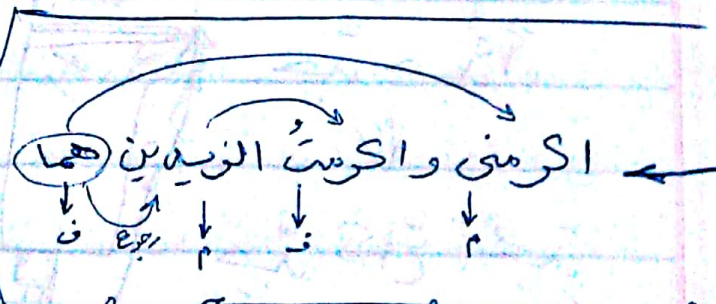 اکرمنی و اکرمتُ الزیدین هما
م ف م رجوع ف